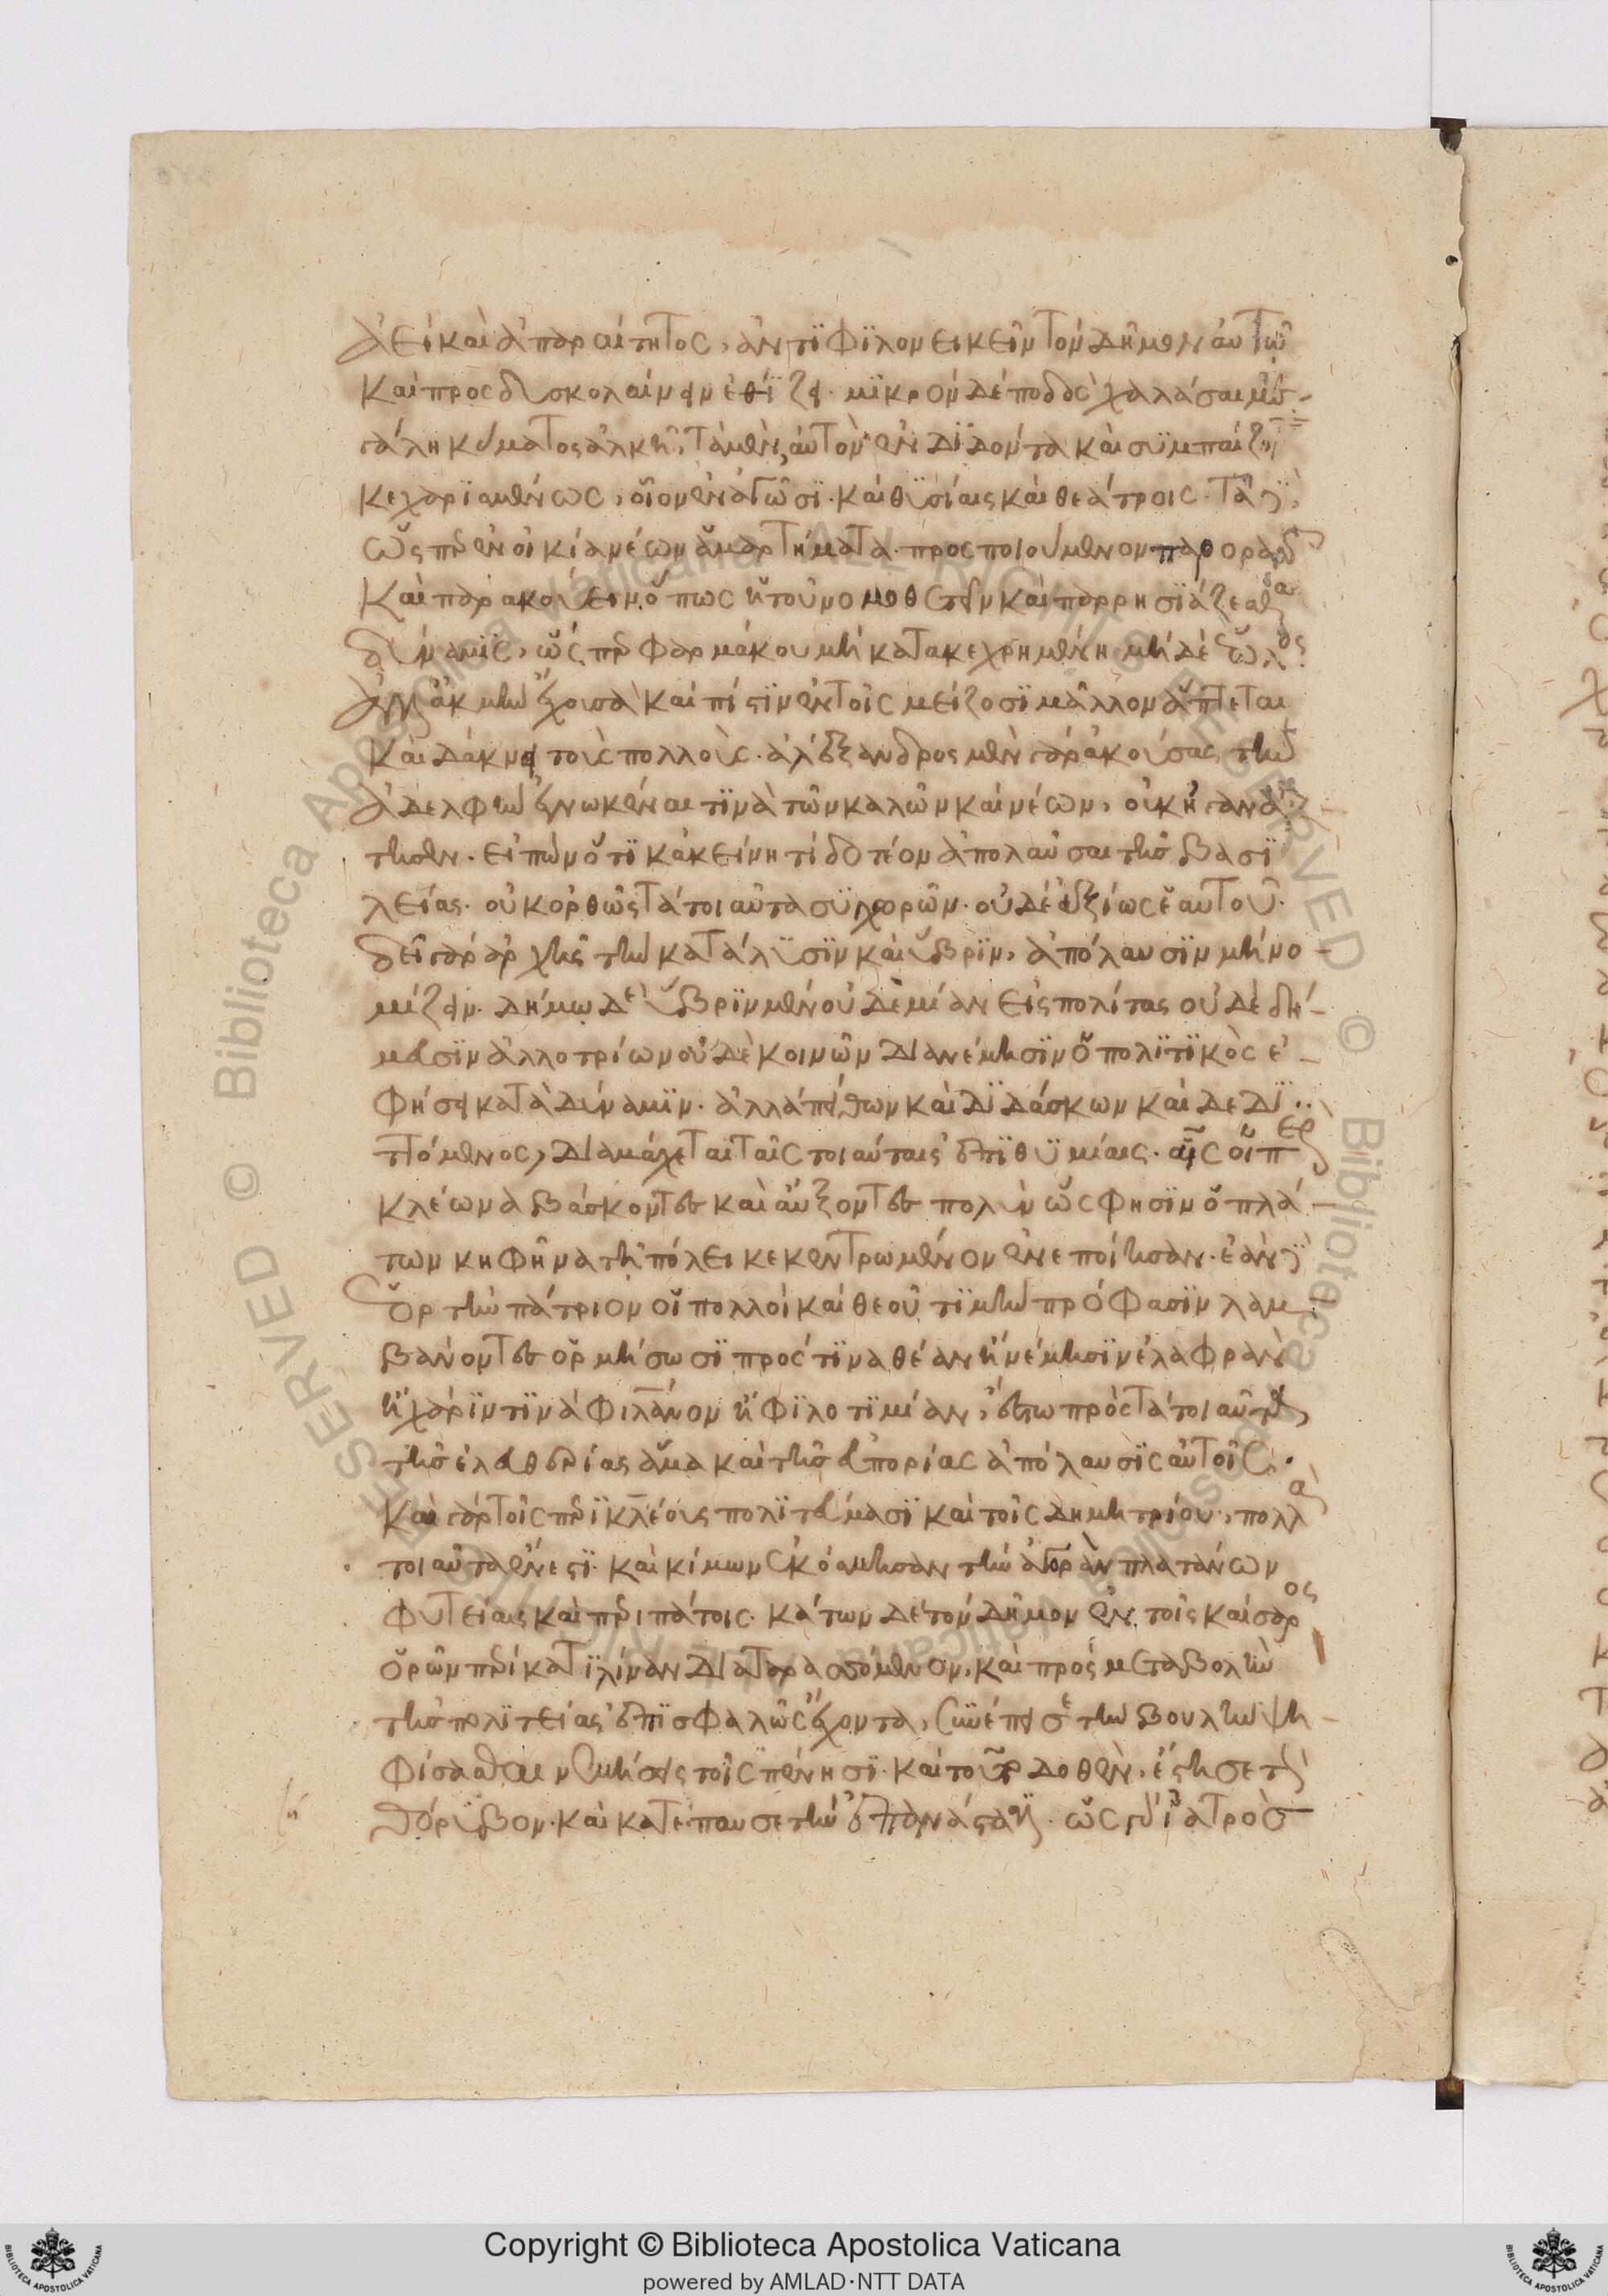 ἀεὶ καὶ ἀπαραίτητος, ἀντιφιλονεικεῖν τὸν δῆμον αὐτῷ
καὶ προσδυσκολαίνειν ἐθίζει. μικρὸν δὲ ποδὸς χαλάσαι με
γάλῃ κύματος ἀλκῇ, τὰ μὲν, αὐτὸν ἐνδιδόντα καὶ συμπαίζειν
κεχαρισμένως, οἷον ἐν ἀγῶσι. καὶ θυσίαις καὶ θεάτροις. τὰ δὲ
ὥσπερ ἐν οἰκίᾳ νέων ἁμαρτήματα. προσποιούμενον παρορᾶν
καὶ παρακούειν, ὅπως ἡ τοῦ νουθετεῖν καὶ παρρησιάζεσθαι
δύναμις, ὥσπερ φαρμάκου μὴ κατακεχρημένη μὴ δὲ ἕωλος
ἀλλ' ἀκμὴν ἔχουσα καὶ πίστιν ἐν τοῖς μείζοσι μᾶλλον ἅπτεται
καὶ δάκνει τοὺς πολλούς. ἀλέξανδρος μὲν γὰρ ἀκούσας τὴν
ἀδελφὴν ἐγνωκέναι τινὰ τῶν καλῶν καὶ νέων, οὐκ ἠγανά
κτησεν. εἰπὼν ὅτι κἀκείνῃ τι δοτέον ἀπολαῦσαι τῆς βασι
λείας. οὐκ ὀρθῶς τὰ τοιαῦτα συγχωρῶν. οὐδὲ ἀξίως ἑαυτοῦ.
δεῖ γὰρ ἀρχῆς τὴν κατάλυσιν καὶ ὕβριν, ἀπόλαυσιν μὴ νο
μίζειν. δήμῳ δὲ ὕβριν μὲν οὐδεμίαν εἰς πολίτας οὐδὲ δή
μευσιν ἀλλοτρίων οὐδὲ κοινῶν διανέμησιν ὁ πολιτικὸς ἐ
φήσει κατὰ δύναμιν. ἀλλὰ πείθων καὶ διδάσκων καὶ δεδι
ττόμενος, διαμάχεται ταῖς τοιαύταις ἐπιθυμίαις. αἷς οἱ περὶ
κλέωνα βόσκοντες καὶ αὔξοντες πολὺν ὥς φησιν ὁ πλά
των κηφῆνα τῇ πόλει κεκεντρωμένον ἐνεποίησαν. ἐὰν δὲ
ἑορτὴν πάτριον οἱ πολλοὶ καὶ θεοῦ τιμὴν πρόφασιν λαμ
βάνοντες ὁρμήσωσι πρός τινα θέαν ἢ νέμησιν ἐλαφρὰν
ἢ χάριν τινὰ φιλάνον ἢ φιλοτιμίαν, ἔστω πρὸς τὰ τοιαῦτα
τῆς ἐλευθερίας ἅμα καὶ τῆς εὐπορίας ἀπόλαυσις αὐτοῖς.
καὶ γὰρ τοῖς περικλέους πολιτεύμασι καὶ τοῖς δημητρίου, πολλὰ
τοιαῦτα ἔνεστι. καὶ κίμων ἐκόσμησαν τὴν ἀγορὰν πλατάνων
φυτείαις καὶ περιπάτοις. κάτων δὲ τὸν δῆμον ἐν τοῖς καίσαρος
ὁρῶν περὶ κατιλίναν διαταρασσόμενον, καὶ πρὸς μεταβολὴν
τῆς πολιτείας ἐπισφαλῶς ἔχοντα, συνέπεισε τὴν βουλὴν ψη
φίσασθαι νεμήσεις τοῖς πένησι. καὶ τοῦτο δοθὲν, ἔστησε τὸν
θόρυβον. καὶ κατέπαυσε τὴν ἐπανάστασιν. ὡς γὰρ ἰατρὸς